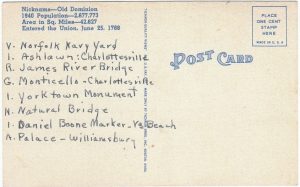 Nickname—Old Dominion
1940 Population—2,677,773
Area in Sq. Miles—42,627
Entered the Union, June 25, 1788
V. Norfolk Navy Yard
I. Ashlawn: Charlottesville
R. James River Bridge
G. Monticello - Charlottesville
I. Yorktown Monument
N. Natural Bridge
I. Daniel Boone Marker - Va Beach
A. Palace - Williamsburg
POST CARD
PLACE
ONE CENT
STAMP
HERE
MADE IN U.S.A.